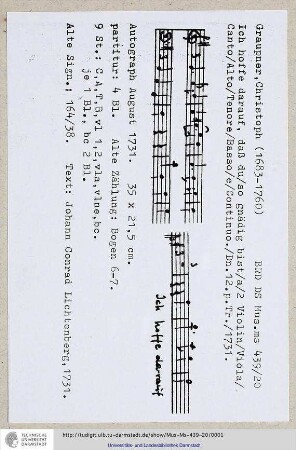 Graupner,Christoph (1683-1760) BRD DS Mus.ms 439/20
Ich hoffe darauf, daß du/so gnädig bist/a/2 Violin/Viola/
Canto/Alto/Tenore/Basso/e/Continuo./Dn.12.p.Tr./1731.
Ich hoffe darauf
Autograph August 1731. 35 x 21,5 cm.
partitur: 4 Bl. Alte Zählung: Bogen 6-7.
9 St.: C,A,T,B,vl 1,2,vla,vlne,bc.
je 1 Bl., bc 2 Bl.
Alte Sign.: 164/38. Text: Johann Conrad Lichtenberg,1731.
TECHNISCHE
UNIVERSITÄT
DARMSTADT
http://tudigit.ulb.tu-darmstadt.de/show/Mus-Ms-439-20/0001
Universitäts- und Landesbibliothek Darmstadt